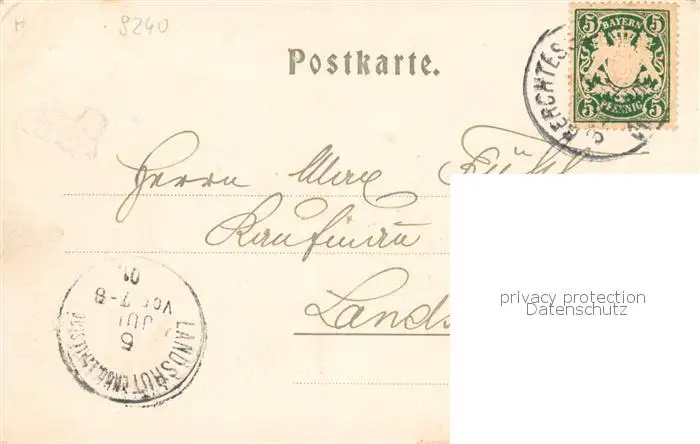 H 9240
Postkarte.
5 BAYERN 5
5 PFENNIG 5
BERCHTES
Herrn Max
Kaufmann
Lands
LANDSHUT
6
JUL
VOR 7-8
01
privacy protection
Datenschutz